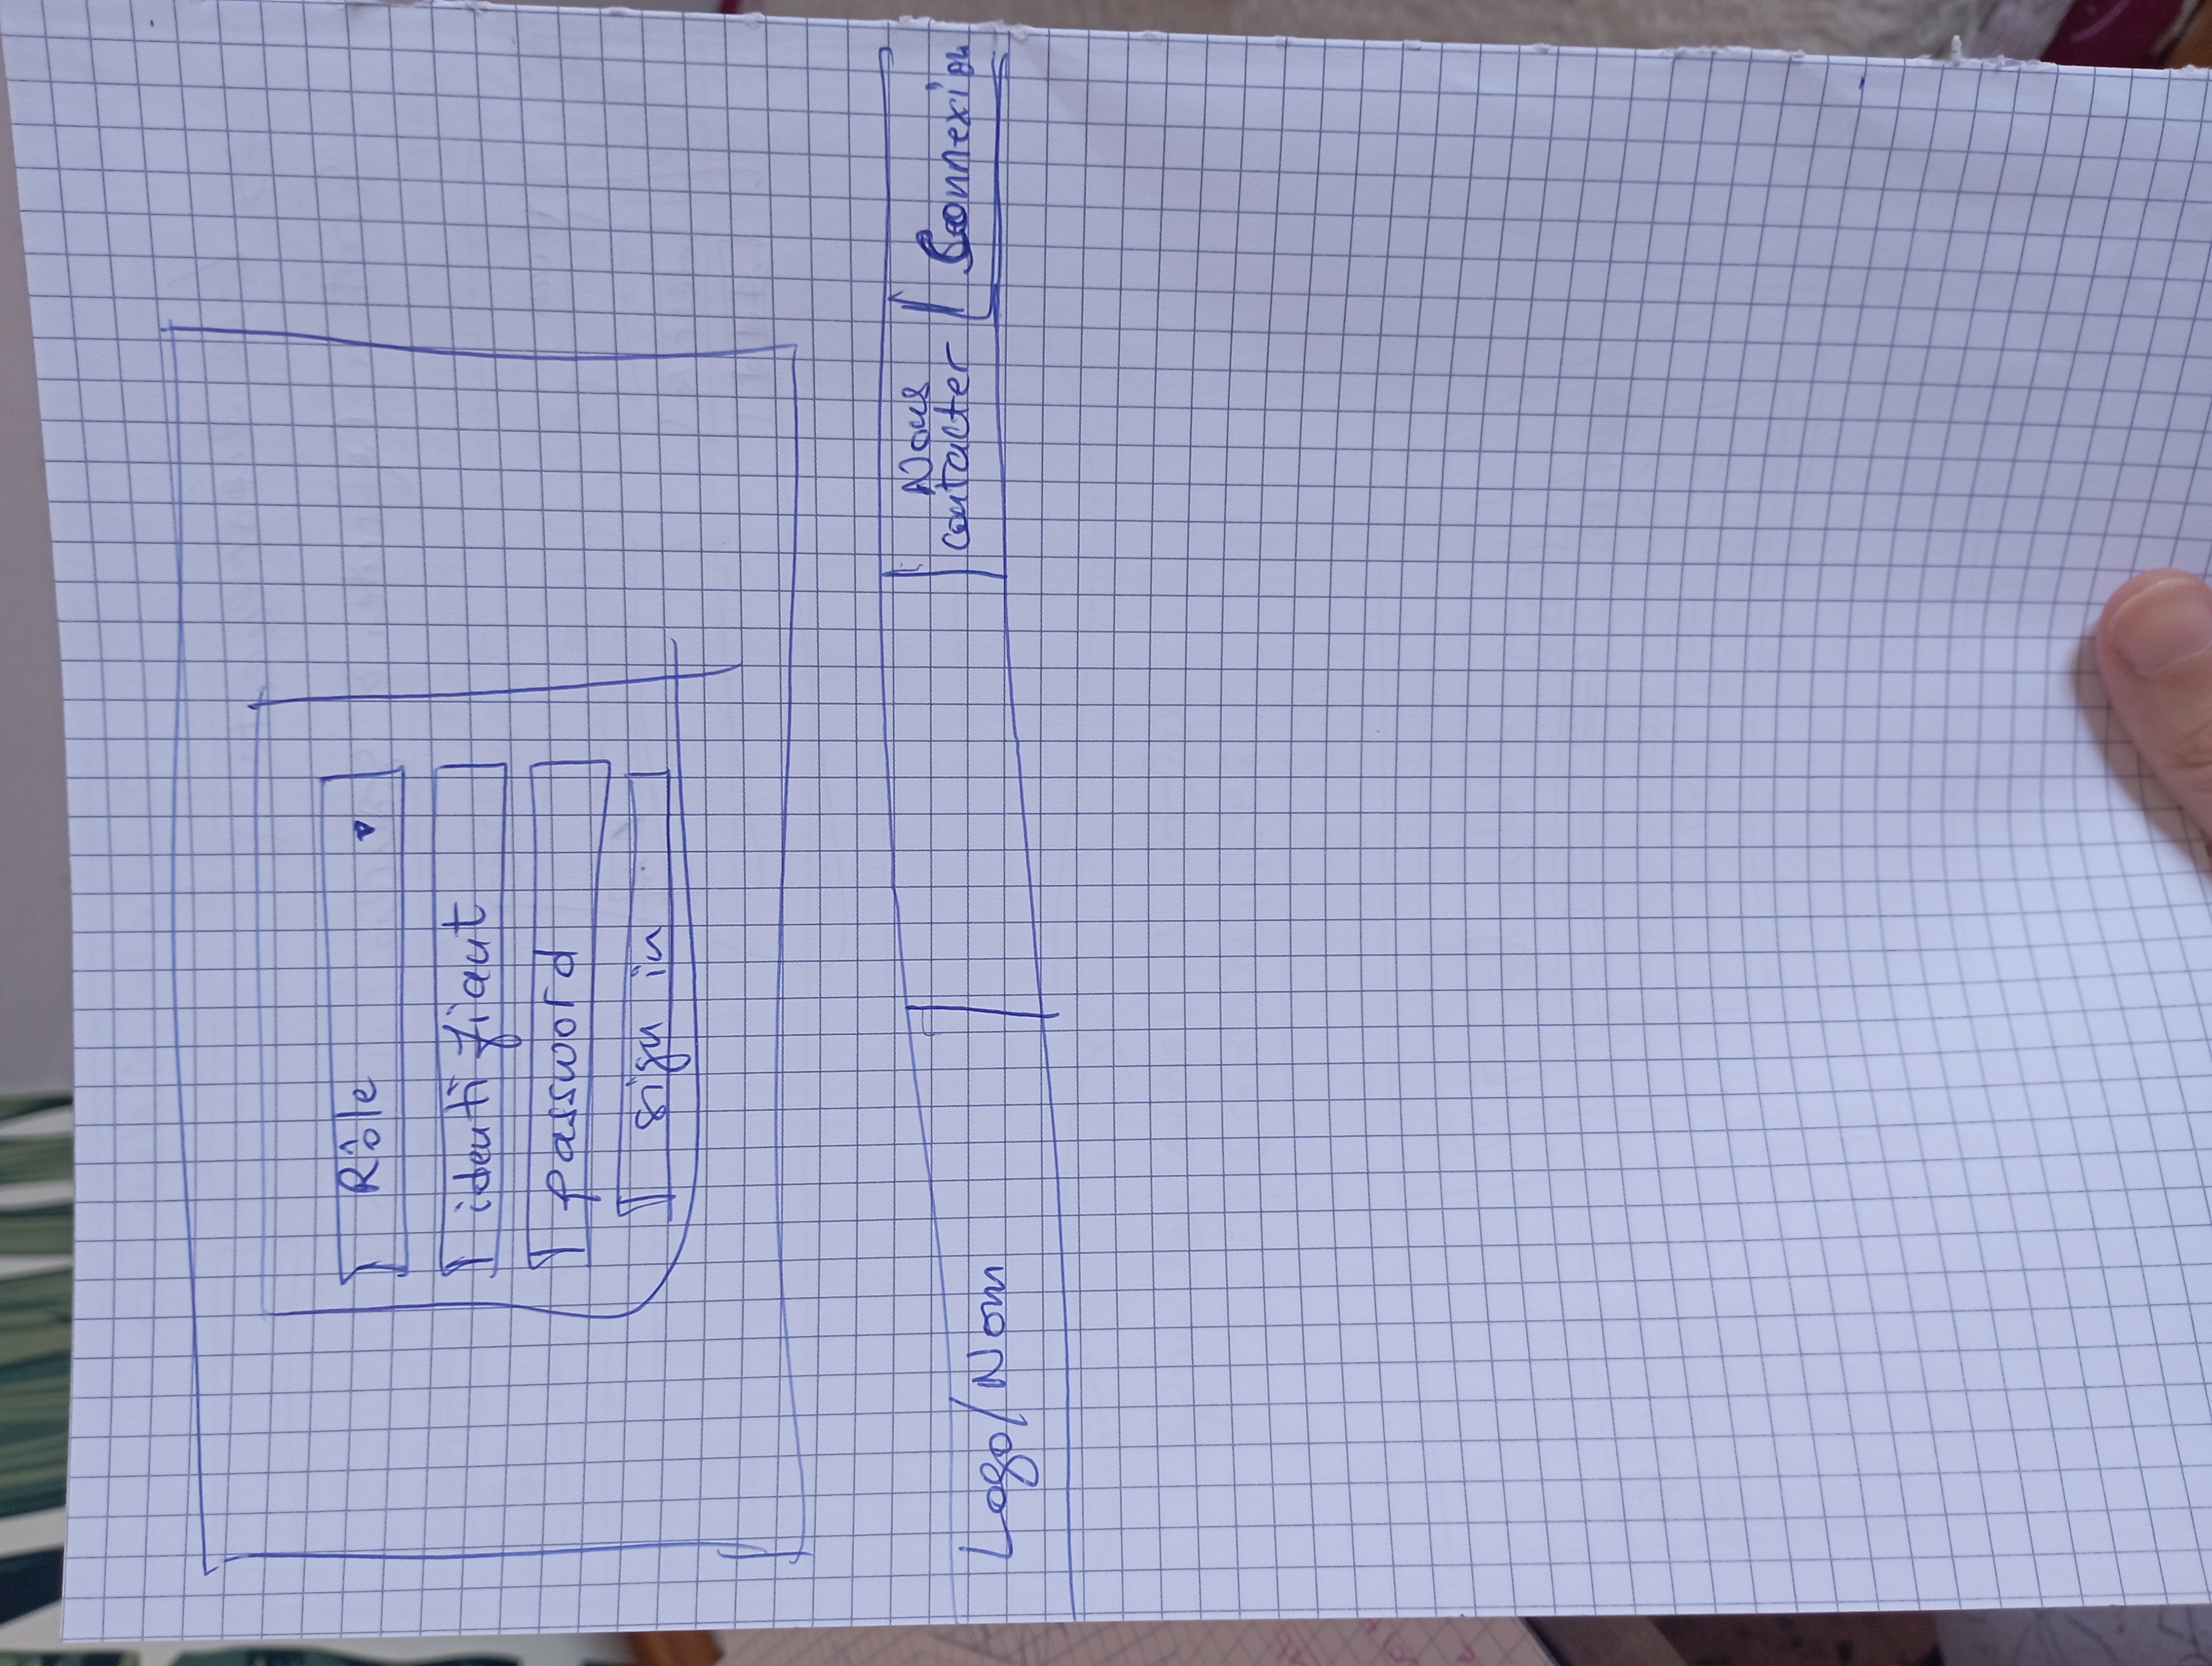 Rôle
identifiant
password
sign in
Logo/Nom
Nous
contacter
Connexion